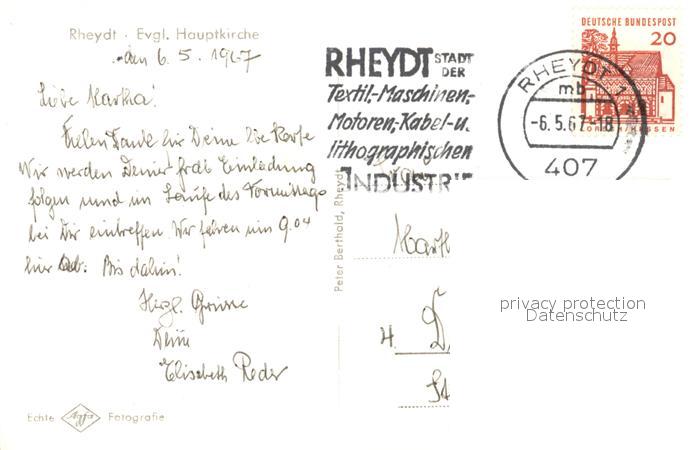 Rheydt · Evgl. Hauptkirche
den 6. 5. 1967
Liebe Martha!
Vielen Dank für Deine liebe Karte
Wir werden Deiner Einladung
folgen und im Laufe des Vormittags
bei Dir eintreffen. Wir fahren um 9.04
hier ab. Bis dahin!
Herzl. Grüsse
Deine
Elisabeth Reder
Echte Agfa Fotografie
Peter Berthold, Rheydt
RHEYDT STADT
DER
Textil-, Maschinen-,
Motoren-, Kabel- u.
lithographischen
INDUSTRIE
DEUTSCHE BUNDESPOST
20
LORSCH/HESSEN
RHEYDT 1
mb
-6.5.67-18
407
4. D
St
privacy protection
Datenschutz